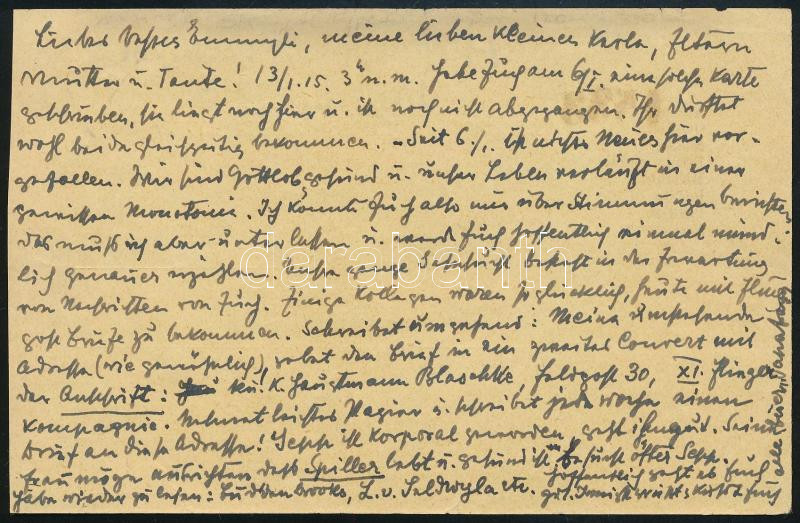 Liebes bestes Emmyli, meine lieben kleinen Karla, Eltern
Mutter u. Tante! 13/I.15. 3h n.m. Habe Euch am 6/I. eine solche Karte
geschrieben, sie liegt noch hier u. ist noch nicht abgegangen. Ihr dürftet
wohl beide gleichzeitig bekommen. – Seit 6./I. ist nichts Neues hier vor-
gefallen. Wir sind Gottlob gesund u. unser Leben verläuft in einer
gewissen Monotonie. Ich könnte Euch also nur über Stimmungen berichten,
das muß ich aber unterlassen u. werde Euch hoffentlich einmal münd-
lich genauer erzählen. Unsere ganze Sehnsucht besteht in der Erwartung
von Nachrichten von Euch. Einige Kollegen waren so glücklich, heute mit Flug-
post Briefe zu bekommen. Schreibet umgehend: Meine umstehende
Adresse (wie gewöhnlich), gebet den Brief in ein zweites Couvert mit
der Anschrift: K.u.K. Hauptmann Blaschke, Feldpost 30, XI. Flieger
Kompagnie. Nehmet leichtes Papier u. schreibet jede Woche einen
Brief an diese Adresse! Sepp ist Korporal geworden, geht ihm gut. Seine
Frau möge ausrichten daß Spiller lebt u. gesund ist öfter Sepp.
Habe wieder zu lesen: Buddenbrooks, L. v. Seldwyla etc.
hoffentlich geht es Euch
gut. Innigst Euch
darabanth